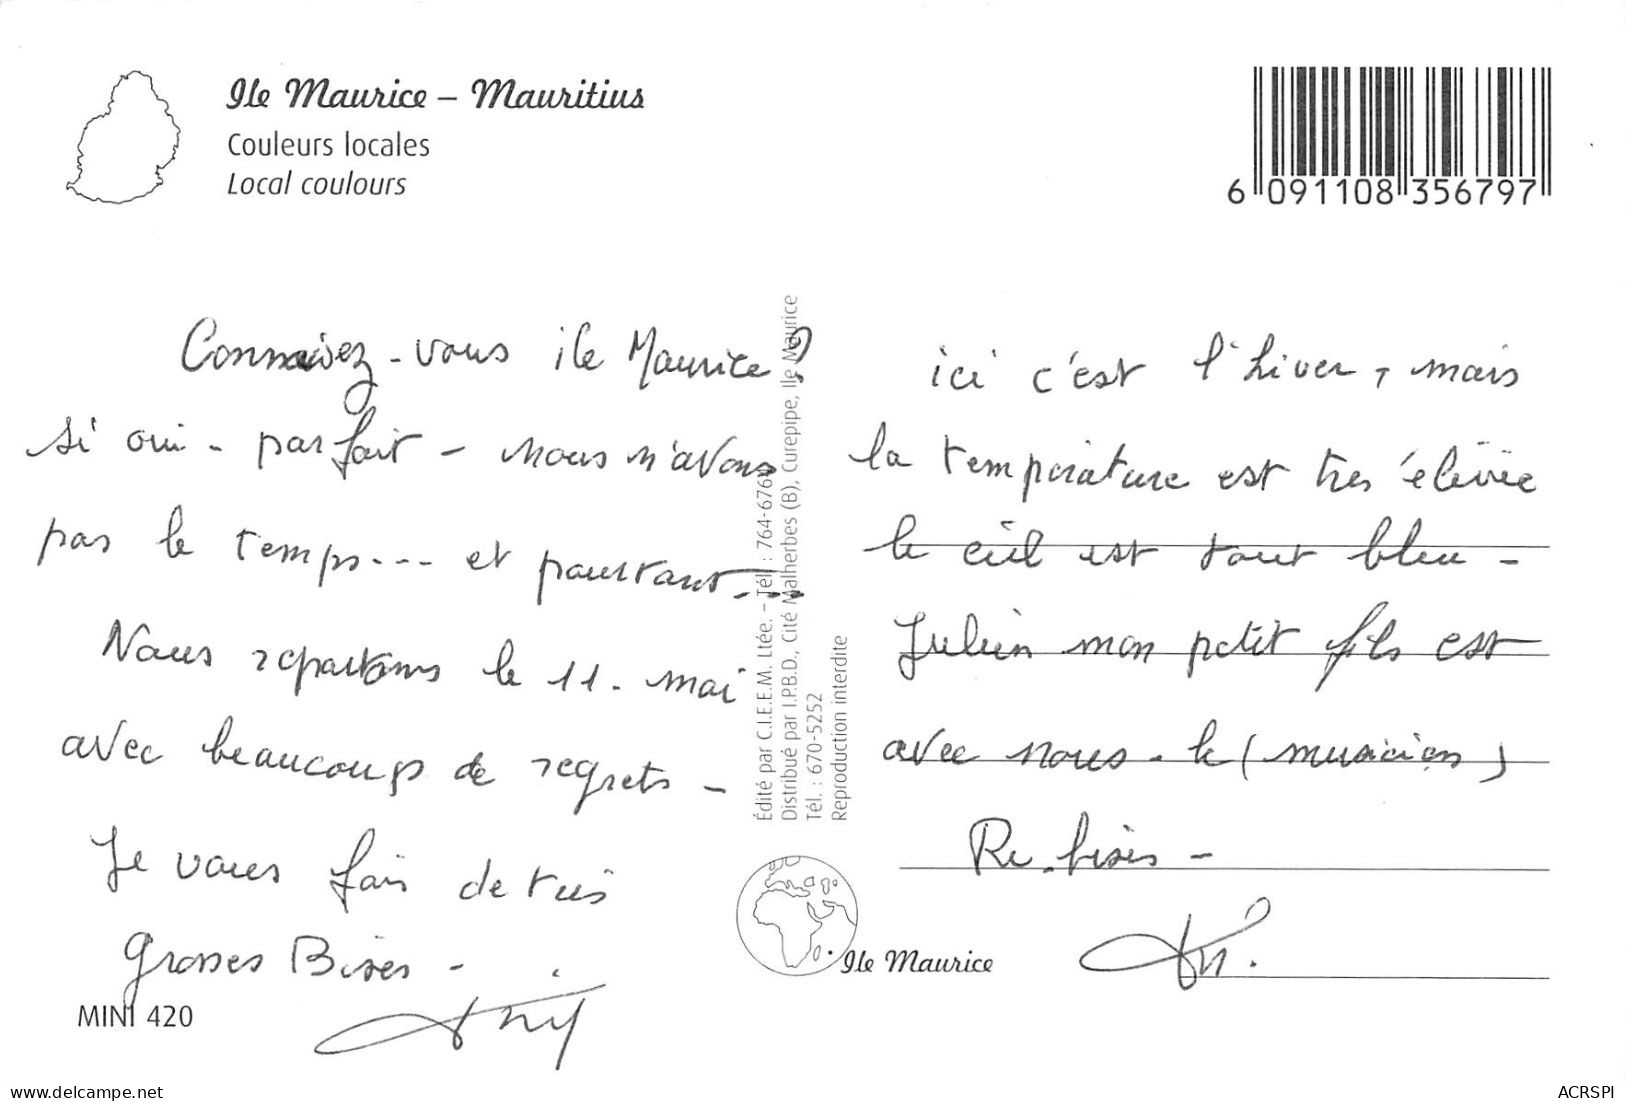 Ile Maurice – Mauritius
Couleurs locales
Local coulours
6 091108 356797
Connaissez-vous ile Maurice ?
si oui - parfait - nous n'avons
pas le temps... et pourtant...
Nous repartons le 11. mai
avec beaucoup de regrets -
Je vous fais de très
grosses Bises -
MINI 420
Édité par C.I.E.E.M. Ltée. – Tél. : 764-676
Distribué par I.P.B.D., Cité Malherbes (B), Curepipe, Ile Maurice
Tél. : 670-5252
Reproduction interdite
Ile Maurice
ici c'est l'hiver, mais
la température est très élévée
le ciel est tout bleu -
Julien mon petit fils est
avec nous - le (musicien)
Re. bises -
delcampe.net
ACRSPI